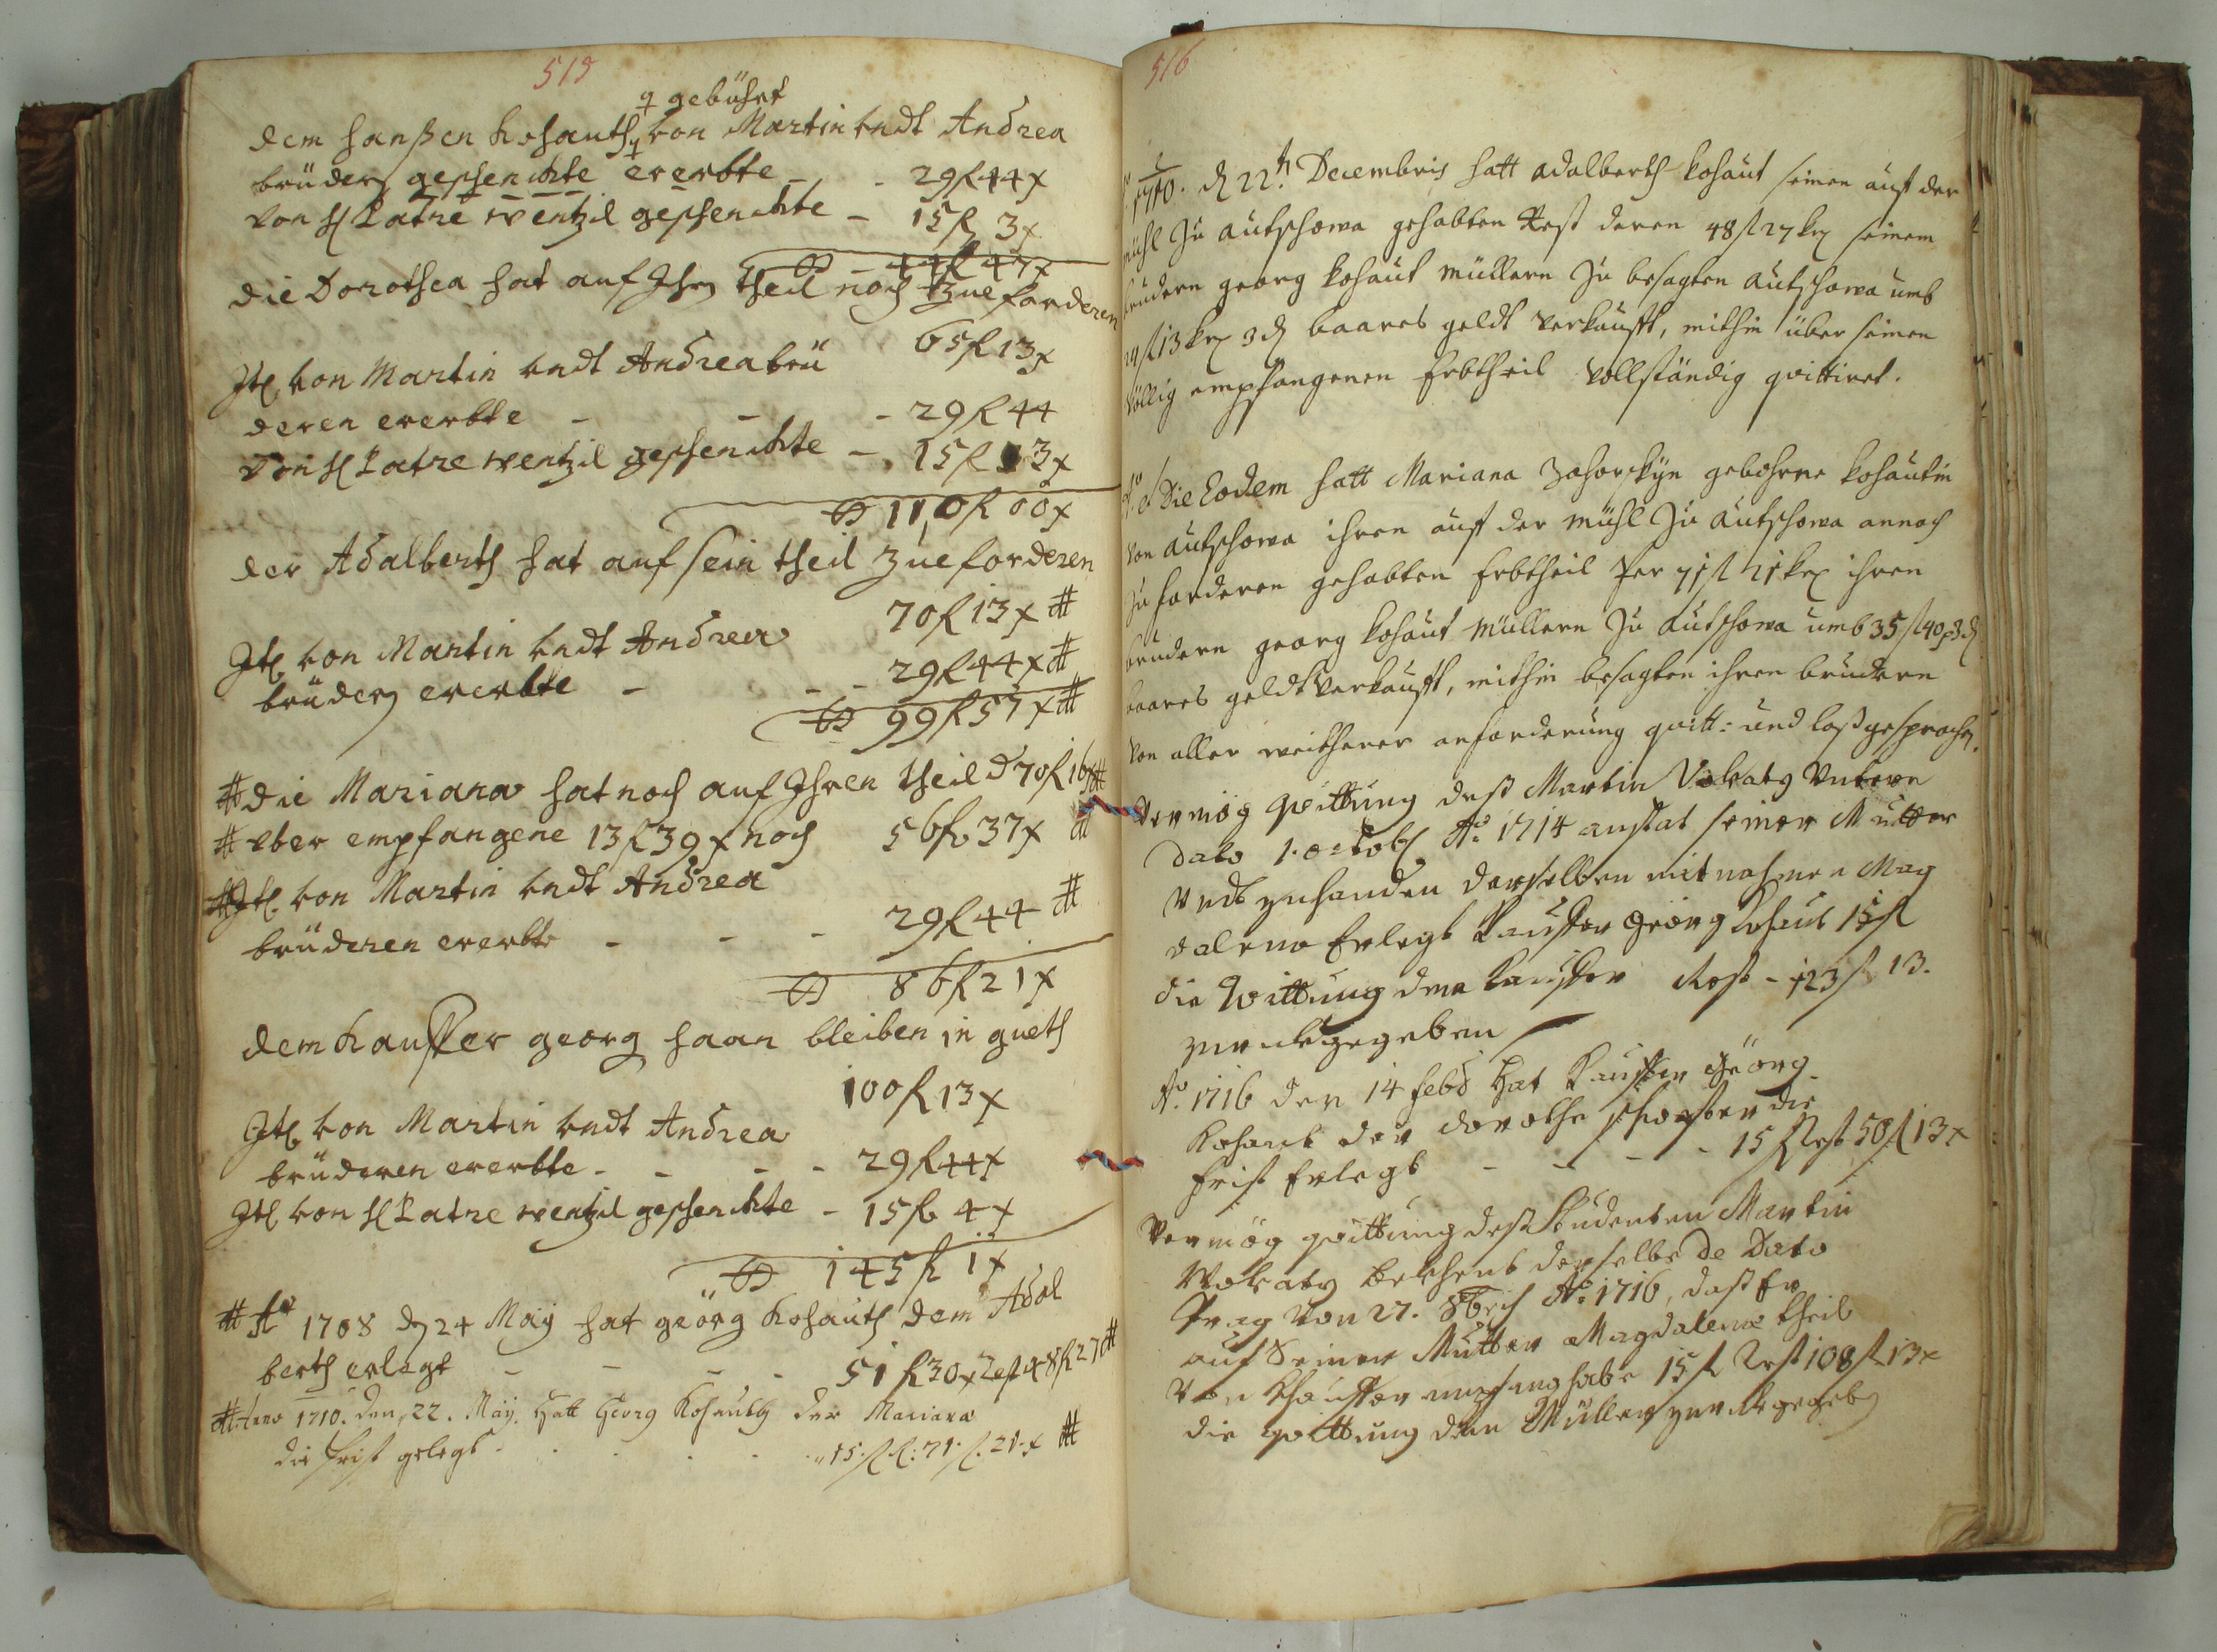 515
gebühret
dem Hanßen Kohauth von Martin undt Andrea
brüder geschenckte ererbte - - 29 fl 44 x
von H Patre Wentzil geschenckte - 15 fl 3 x
44 fl 47 x
die Dorothea hat auf Ihr theil noch zue forderen
65 fl 13 x
Itl von Martin undt Andrea brü
deren ererbte - - - 29 fl 44
von H Patre Wentzil geschenckte - 15 fl 3 x
110 fl 00 x
der Adalberth hat auf sein theil zue forderen
70 fl 13 x #
Itl von Martin undt Andrea
brüder ererbte - - - 29 fl 44 x #
99 fl 57 x #
# die Mariana hat noch auf Ihren theil d 70 fl 16 x #
# über empfangene 13 fl 39 x noch 56 fl 37 x #
# Itl von Martin undt Andrea
brüderen ererbte - - - 29 fl 44 #
86 fl 21 x
dem Kauffer georg haan bleiben in gueth
100 fl 13 x
Itl von Martin undt Andrea
brüderen ererbte - - - - 29 fl 44 x
Itl von H Patre Wentzil geschenckte - 15 fl 4 x
145 fl 1 x
# Ao 1708 d 24 May hat geörg Kohauth dem Adal
berth erlegt - - - - 51 fl 30 x Rest 48 fl 27 #
# Anno 1710. den 22. May. Hatt Georg Kohauth der Mariana
die frist gelegt . . . . 15 fl R: 71 fl 21 x #
516
d 22t Decembris hatt Adalberth Kohaut seinen auff der
mühl zu Autschowa gehabten Rest deren 48 fl 27 kr seinem
brudern georg Kohaut Müllern zu besagten Autschowa umb
24 fl 13 kr 3 d baares geldt verkaufft, mithin über seinen
völlig empfangenen Erbtheil vollständig quittiret.
die Eodem hatt Mariana Zahorskÿn gebohrne Kohautin
von Autschowa ihren auff der mühl zu Autschowa annoch
zu forderen gehabten Erbtheil per 71 fl 21 kr ihren
brudern georg Kohaut Müllern zu Autschowa umb 35 fl 40 x 3 d
baares geldt verkaufft, mithin besagten ihren brudern
von aller weitherer anforderung quitt: und loßgesprochen.
Vermög Quittung deß Martin Wokaty Untern
Dato 1. octobr Ao 1714 anstat seiner Mutter
undt zuhanden derselben mit nahmen Mag
dalena Erlegt Kauffer Geörg Kohaut 15 fl
die Quittung dem Kauffer Rest - 123 fl 13.
zuruckgegeben
Ao. 1716 den 14 febr Hat Kauffer Geörg
Kohaut der dorothe schwester die
frist Erlegt - - - - 15 fl Rest 50 fl 13 x
Vermög quittung deß Studenten Martin
Wokaty bekhent derselbe De Dato
Prag Von 27. 8bris Ao 1716, daß Er
auf Seiner Mutter Magdalena theil
Von Khauffer empfang habe 15 fl Rest 108 fl 13 x
die quittung dem Müller zuruckgegeb